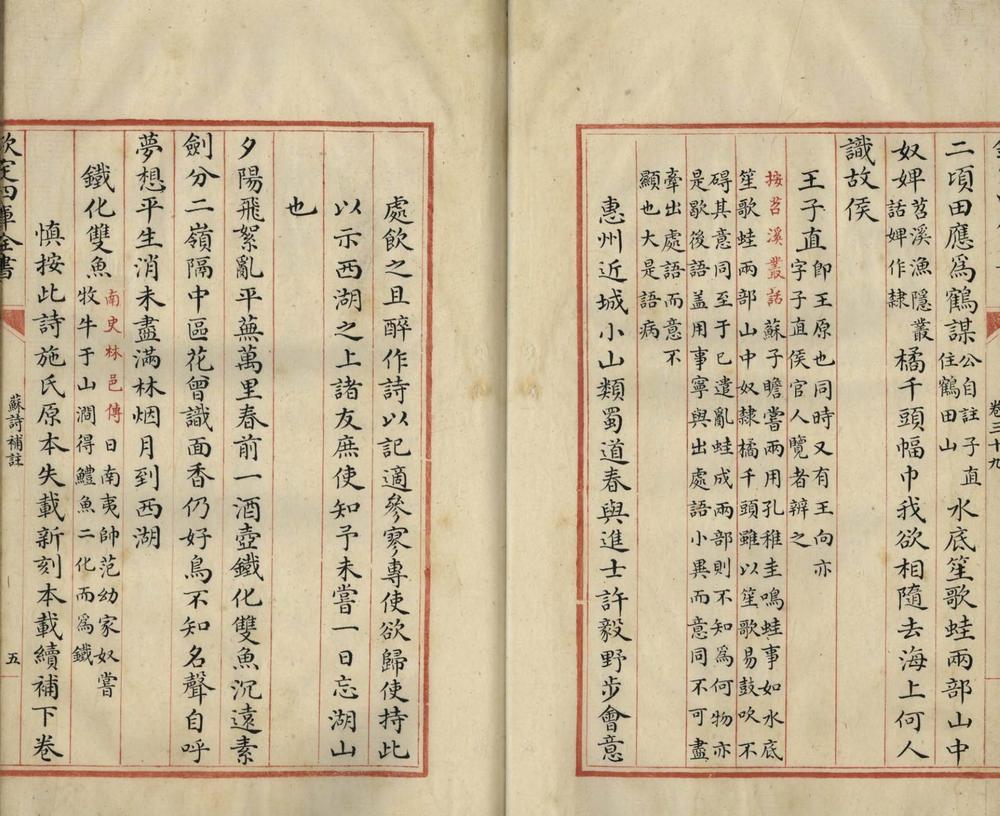 卷三十九
二頃田應為鶴謀公自註子直住鶴田山水底笙歌蛙兩部山中
奴婢苕溪漁隱叢話婢作隸橘千頭幅巾我欲相隨去海上何人
識故侯
王子直字子直侯官人覽者辨之即王原也同時又有王向亦
按苕溪叢話蘇子瞻嘗兩用孔稚圭鳴蛙事如水底
笙歌蛙兩部山中奴隸橘千頭雖以笙歌易鼓吹不
礙其意同至于已遣亂蛙成兩部則不知為何物亦
是歇後語蓋用事寧與出處語小異而意同不可盡
牽出處語而意不
顯也大是語病
惠州近城小山類蜀道春與進士許毅野步會意
處飲之且醉作詩以記適參寥專使欲歸使持此
以示西湖之上諸友庶使知予未嘗一日忘湖山
也
夕陽飛絮亂平蕪萬里春前一酒壺鐵化雙魚沉遠素
劍分二嶺隔中區花曾識面香仍好鳥不知名聲自呼
夢想平生消未盡滿林烟月到西湖
鐵化雙魚南史林邑傳日南夷帥范幼家奴嘗
牧牛于山澗得鱧魚二化而為鐵
慎按此詩施氏原本失載新刻本載續補下卷
欽定四庫全書
蘇詩補註
五